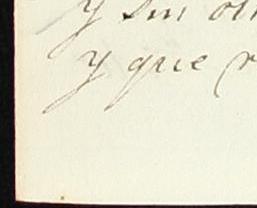 y sin
y que